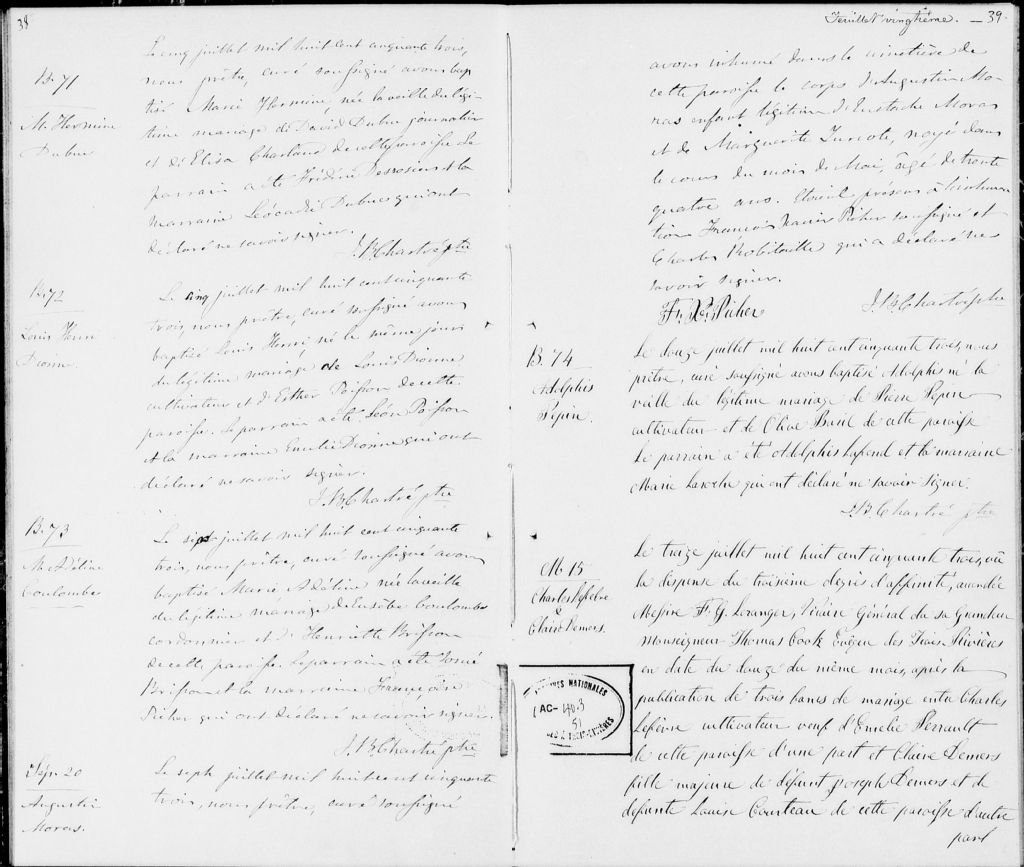 38
B. 71
M. Hermine
Dubuc
Le cinq juillet mil huit cent cinquante trois,
nous prêtre, curé soussigné avons bap
tisé Marie Hermine, née la veille du légi-
time mariage de David Dubuc journalier
et de Elisa Charland de cette paroisse. Le
parrain a été Frédéric Desrosiers et la
marraine Léocadie Dubuc qui ont
déclaré ne savoir signer.
J. B. Chartré ptre
B. 72
Louis Henri
Dionne
Le cinq juillet mil huit cent cinquante
trois, nous prêtre, curé soussigné avons
baptisé Louis Henri, né le même jour
du légitime mariage de Louis Dionne
cultivateur et d'Esther Poisson de cette
paroisse. Le parrain a été Léon Poisson
et la marraine Emélie Dionne qui ont
déclaré ne savoir signer.
J. B. Chartré ptre
B. 73
M. Adéline
Coulombe
Le sept juillet mil huit cent cinquante
trois, nous prêtre, curé soussigné avons
baptisé Marie Adéline née la veille
du légitime mariage de Coulombe
cordonnier et d'Henriette Brisson
de cette paroisse. Le parrain a été Josué
Brisson et la marraine Françoise
Picher qui ont déclaré ne savoir signer.
J. B. Chartré ptre
Sép. 20
Augustin
Moras.
Le sept juillet mil huit cent cinquante
trois, nous prêtre, curé soussigné
Feuillet vingtième. — 39.
avons inhumé dans le cimetière de
cette paroisse le corps d'Augustin Mo-
ras enfant légitime d'Eustache Moras
et de Marguerite Turcote, noyé dans
le cours du mois de Mai, âgé de trente
quatre ans. Etaient présens à l'inhuma
tion François Xavier Picher soussigné et
Charles Robitaille qui a déclaré ne
savoir signer.
Fr. Xr. Picher
J. B. Chartré ptre
B. 74
Adolphis
Pepin.
Le douze juillet mil huit cent cinquante trois, nous
prêtre, curé soussigné avons baptisé Adolphis né la
veille du légitime mariage de Pierre Pepin
cultivateur et de Olive Basil de cette paroisse
Le parrain a été Adolphis Lafond et la marraine
Marie Laroche qui ont déclaré ne savoir signer.
J. B. Chartré ptre
M. 15
Charles Lefebvre
&
Claire Demers.
Le treize juillet mil huit cent cinquante trois, vû
la dispense du troisième degrés d'affinité, accordée
Messire F. G. Loranger, Vicaire Général du sa Grandeur
Monseigneur Thomas Cook Evêque des Trois-Rivières
en date du douze du même mois, après la
publication de trois bans de mariage entre Charles
Lefèvre cultivateur veuf d'Emélie Perrault
de cette paroisse d'une part et Claire Demers
fille majeure de défunt Joseph Demers et de
défunte Louise Courteau de cette paroisse d'autre
part
ARCHIVES NATIONALES
AC- 403
51
À TROIS-RIVIÈRES